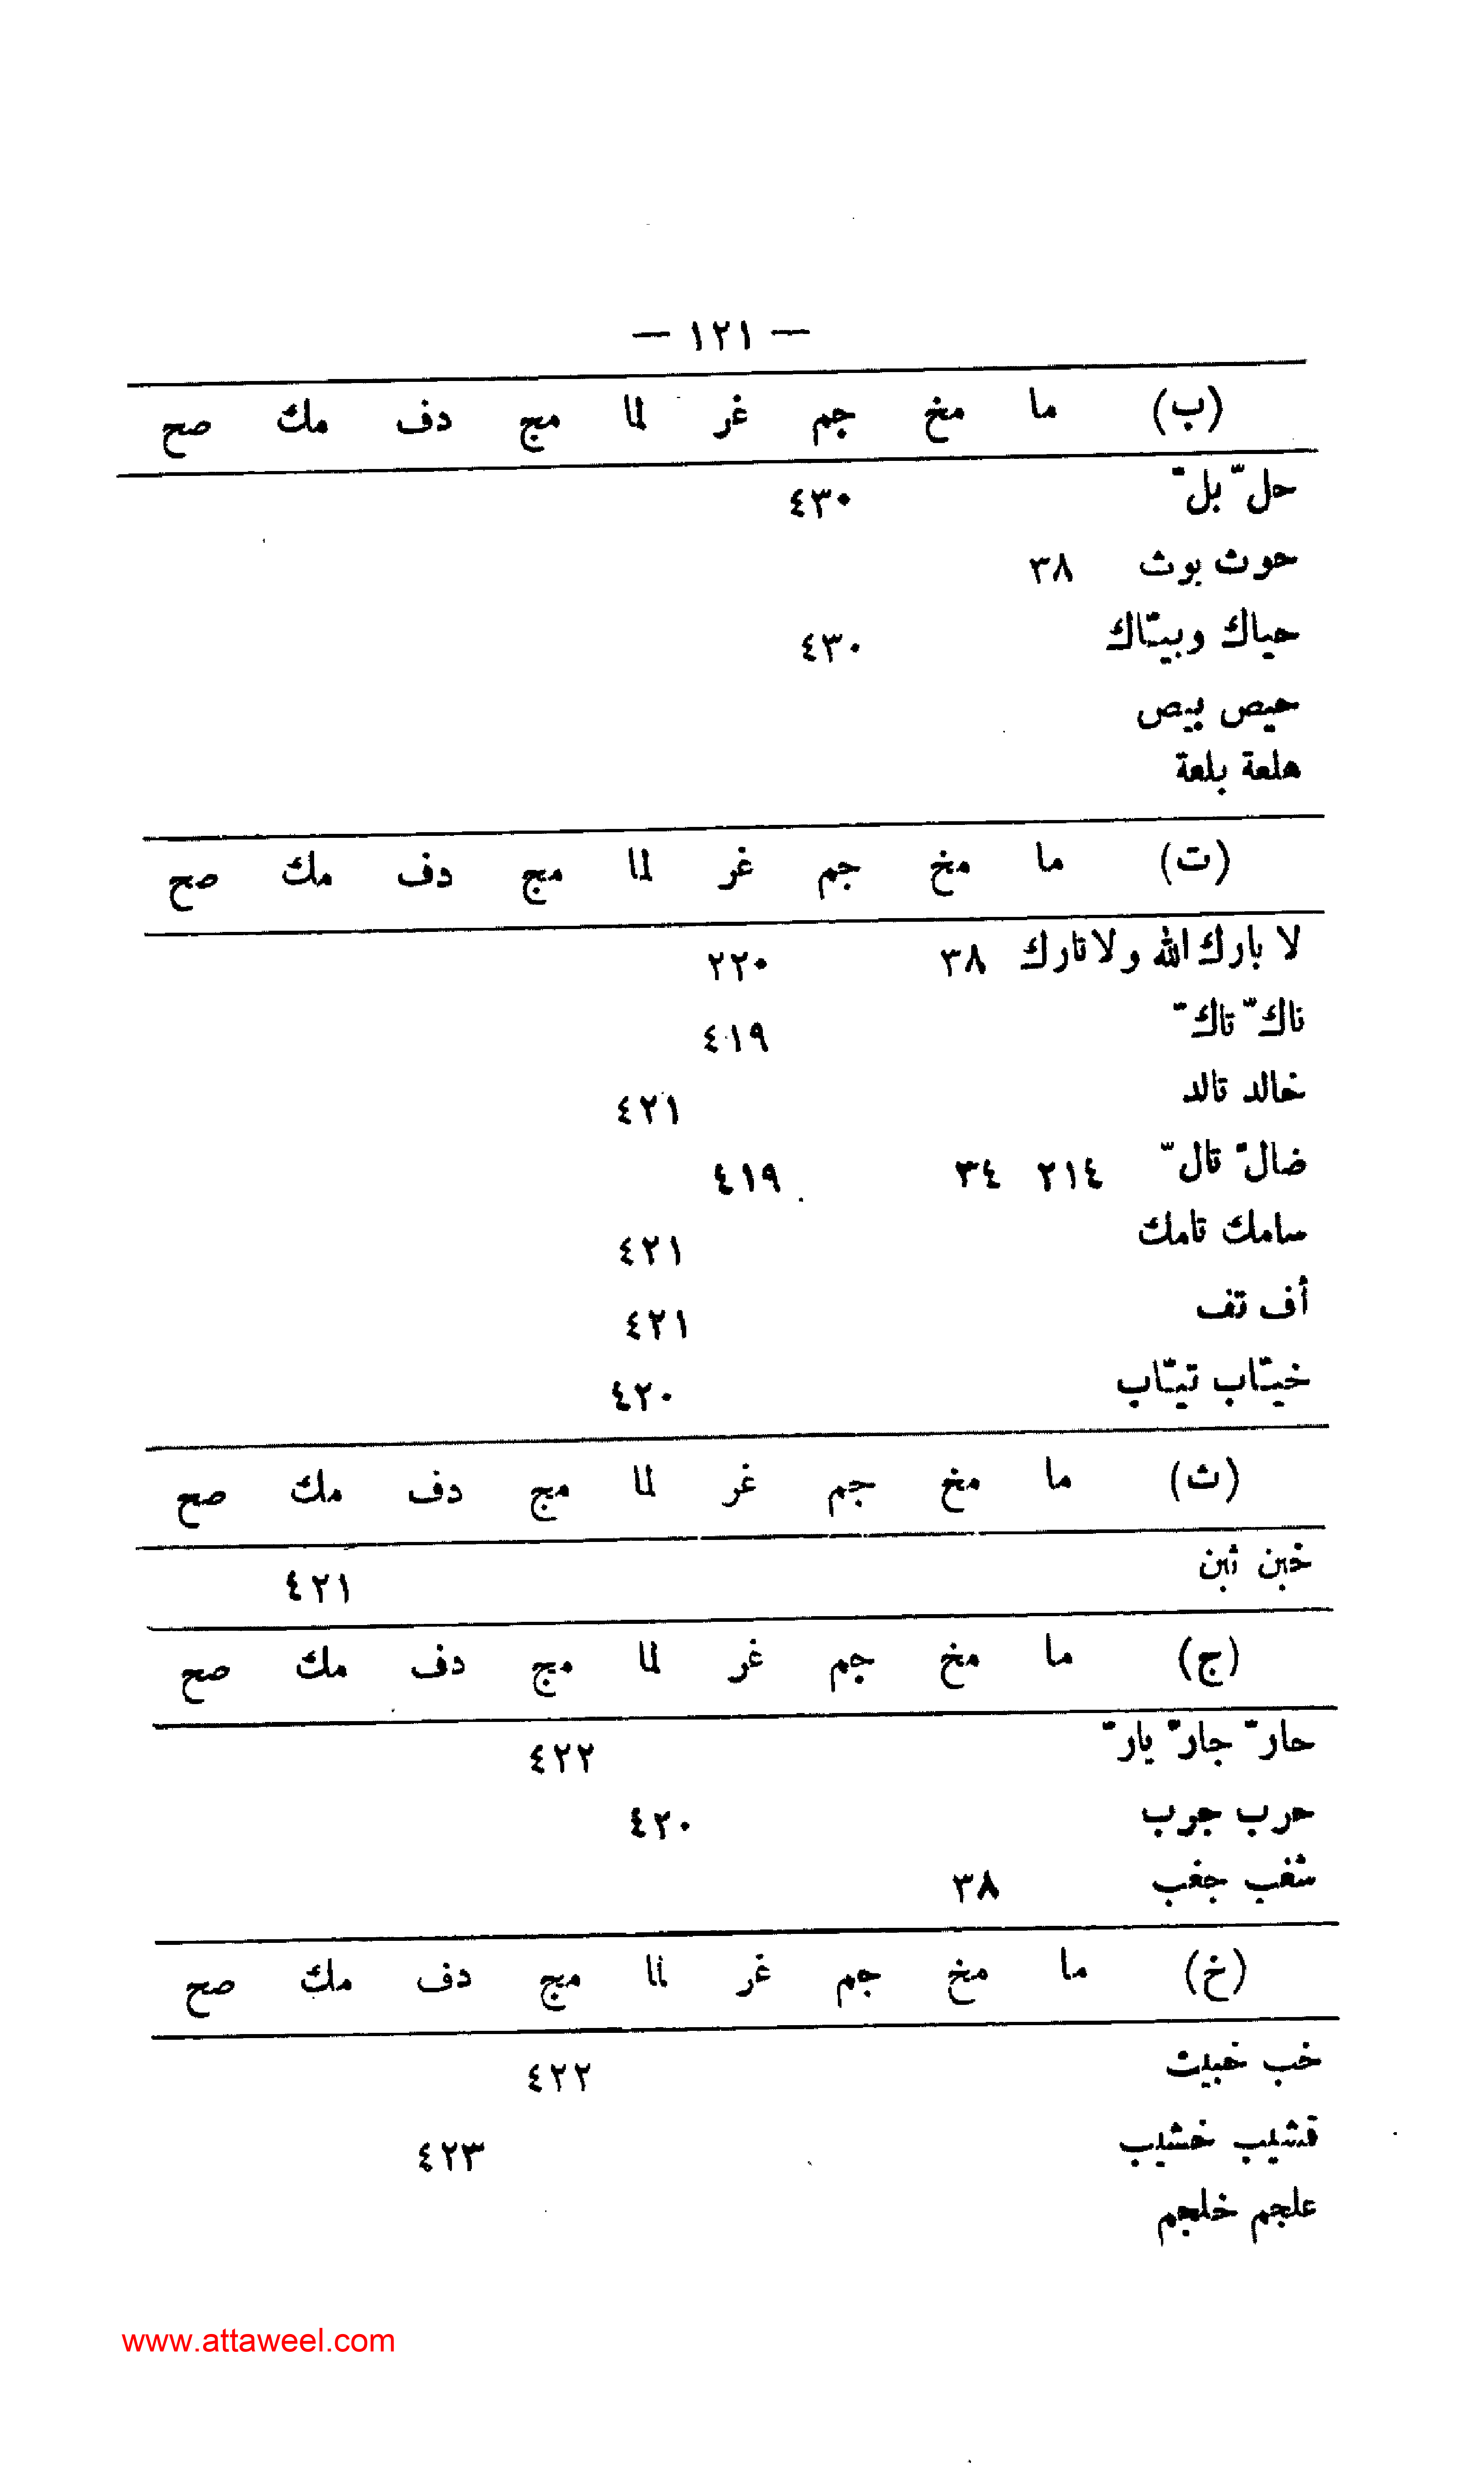 — ١٢١ —
(ب) ما مخ جم غر لما مج دف مك صح
حلّ بلّ ٤٣٠
حوث بوث ٣٨
حياك وبيّاك ٤٣٠
حيص بيص
هلعة بلعة
(ت) ما مخ جم غر لما مج دف مك صح
لا بارك الله ولا تارك ٣٨ ٢٢٠
تاكّ ٤١٩
خالد تالد ٤٢١
ضالّ تالّ ٢١٤ ٣٤ ٤١٩
سامك تامك ٤٢١
أف تف ٤٢١
خيّاب تيّاب ٤٢٠
(ث) ما مخ جم غر لما مج دف مك صح
خبن ثبن ٤٢١
(ج) ما مخ جم غر لما مج دف مك صح
حارّ جارّ يارّ ٤٢٢
حرب جرب ٤٢٠
شغب جغب ٣٨
(خ) ما مخ جم غر لما مج دف مك صح
خب خبيث ٤٢٢
قشيب خشيب ٤٢٣
علجم خلجم
www.attaweel.com